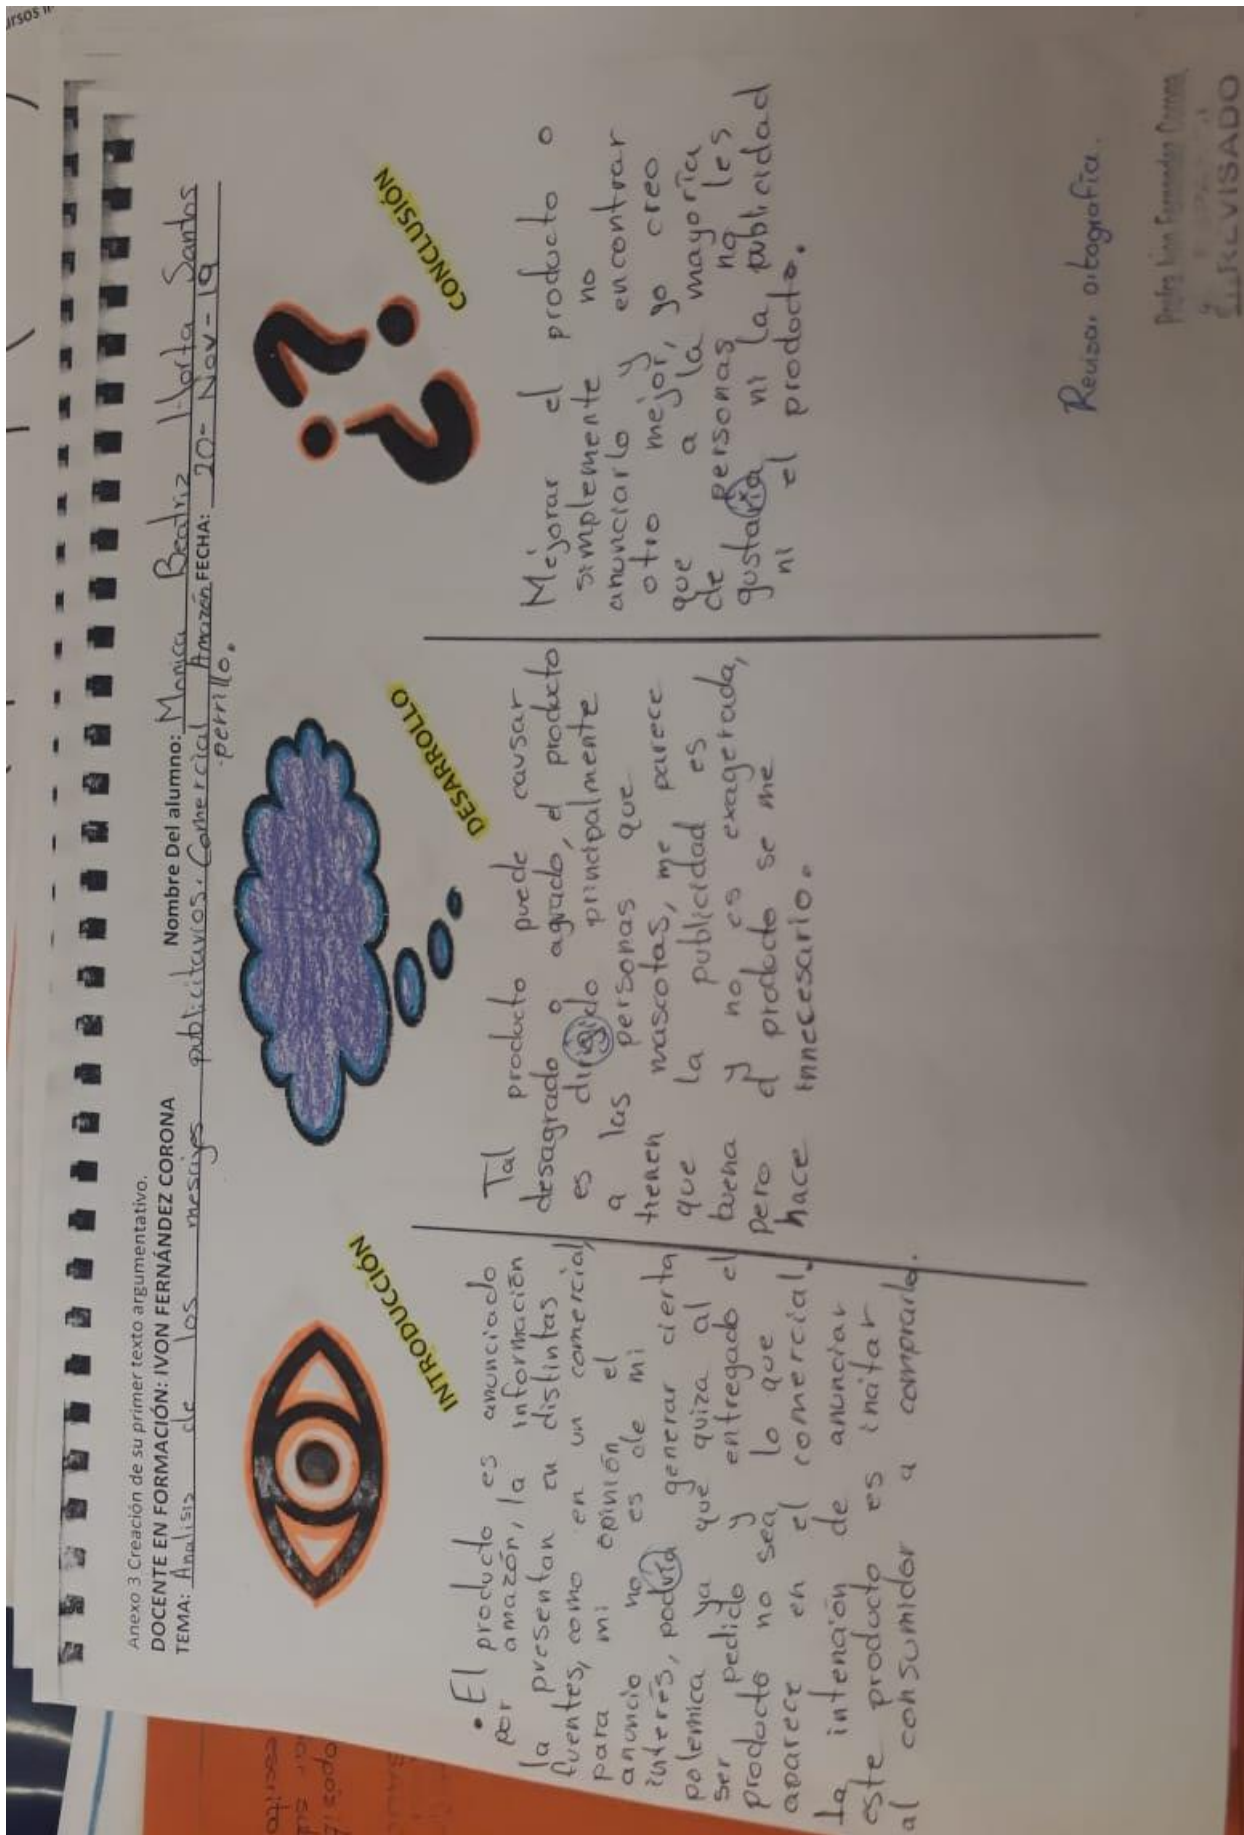 Anexo 3 Creación de su primer texto argumentativo.
DOCENTE EN FORMACIÓN: IVON FERNÁNDEZ CORONA
Nombre Del alumno: Monica Beatriz Horta Santos
TEMA: Analisis de los mesajes publicitavios. Comercial Amazón FECHA: 20- Nov - 19
perrillo.
INTRODUCCIÓN
• El producto es anunciado
por amazón, la información
la presentan en distintas
fuentes, como en un comercial,
para mi opinión el
anuncio no es de mi
interés, podría generar cierta
polemica ya que quiza al
ser pedido y entregado el
producto no sea lo que
aparece en el comercial.
La intención de anunciar
este producto es initar
al consumidor a comprarlo.
DESARROLLO
Tal producto puede causar
desagrado o agrado, el producto
es dirigido principalmente
a las personas que
tienen mascotas, me parece
que la publicidad es
buena y no es exagerada,
pero el producto se me
hace innecesario.
CONCLUSIÓN
Mejorar el producto o
simplemente no
anunciarlo y encontrar
otro mejor, yo creo
que a la mayoría
de personas no les
gustaría ni la publicidad
ni el producto.
Revisar ortografía.
REVISADO